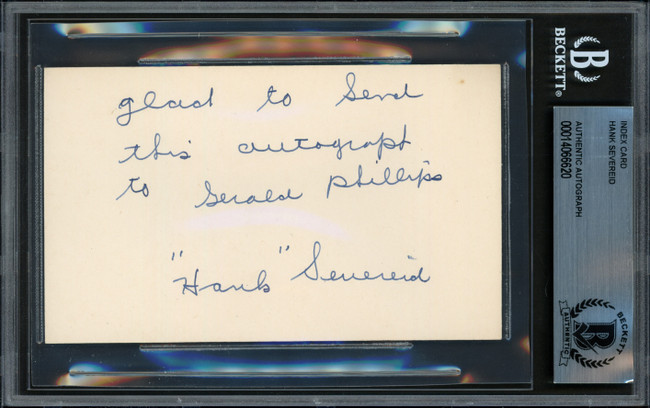 glad to Send
this autograph
to Gerald Phillips
"Hank" Severeid
BECKETT®
INDEX CARD
HANK SEVEREID
AUTHENTIC AUTOGRAPH
00014066620
BECKETT
AUTHENTIC